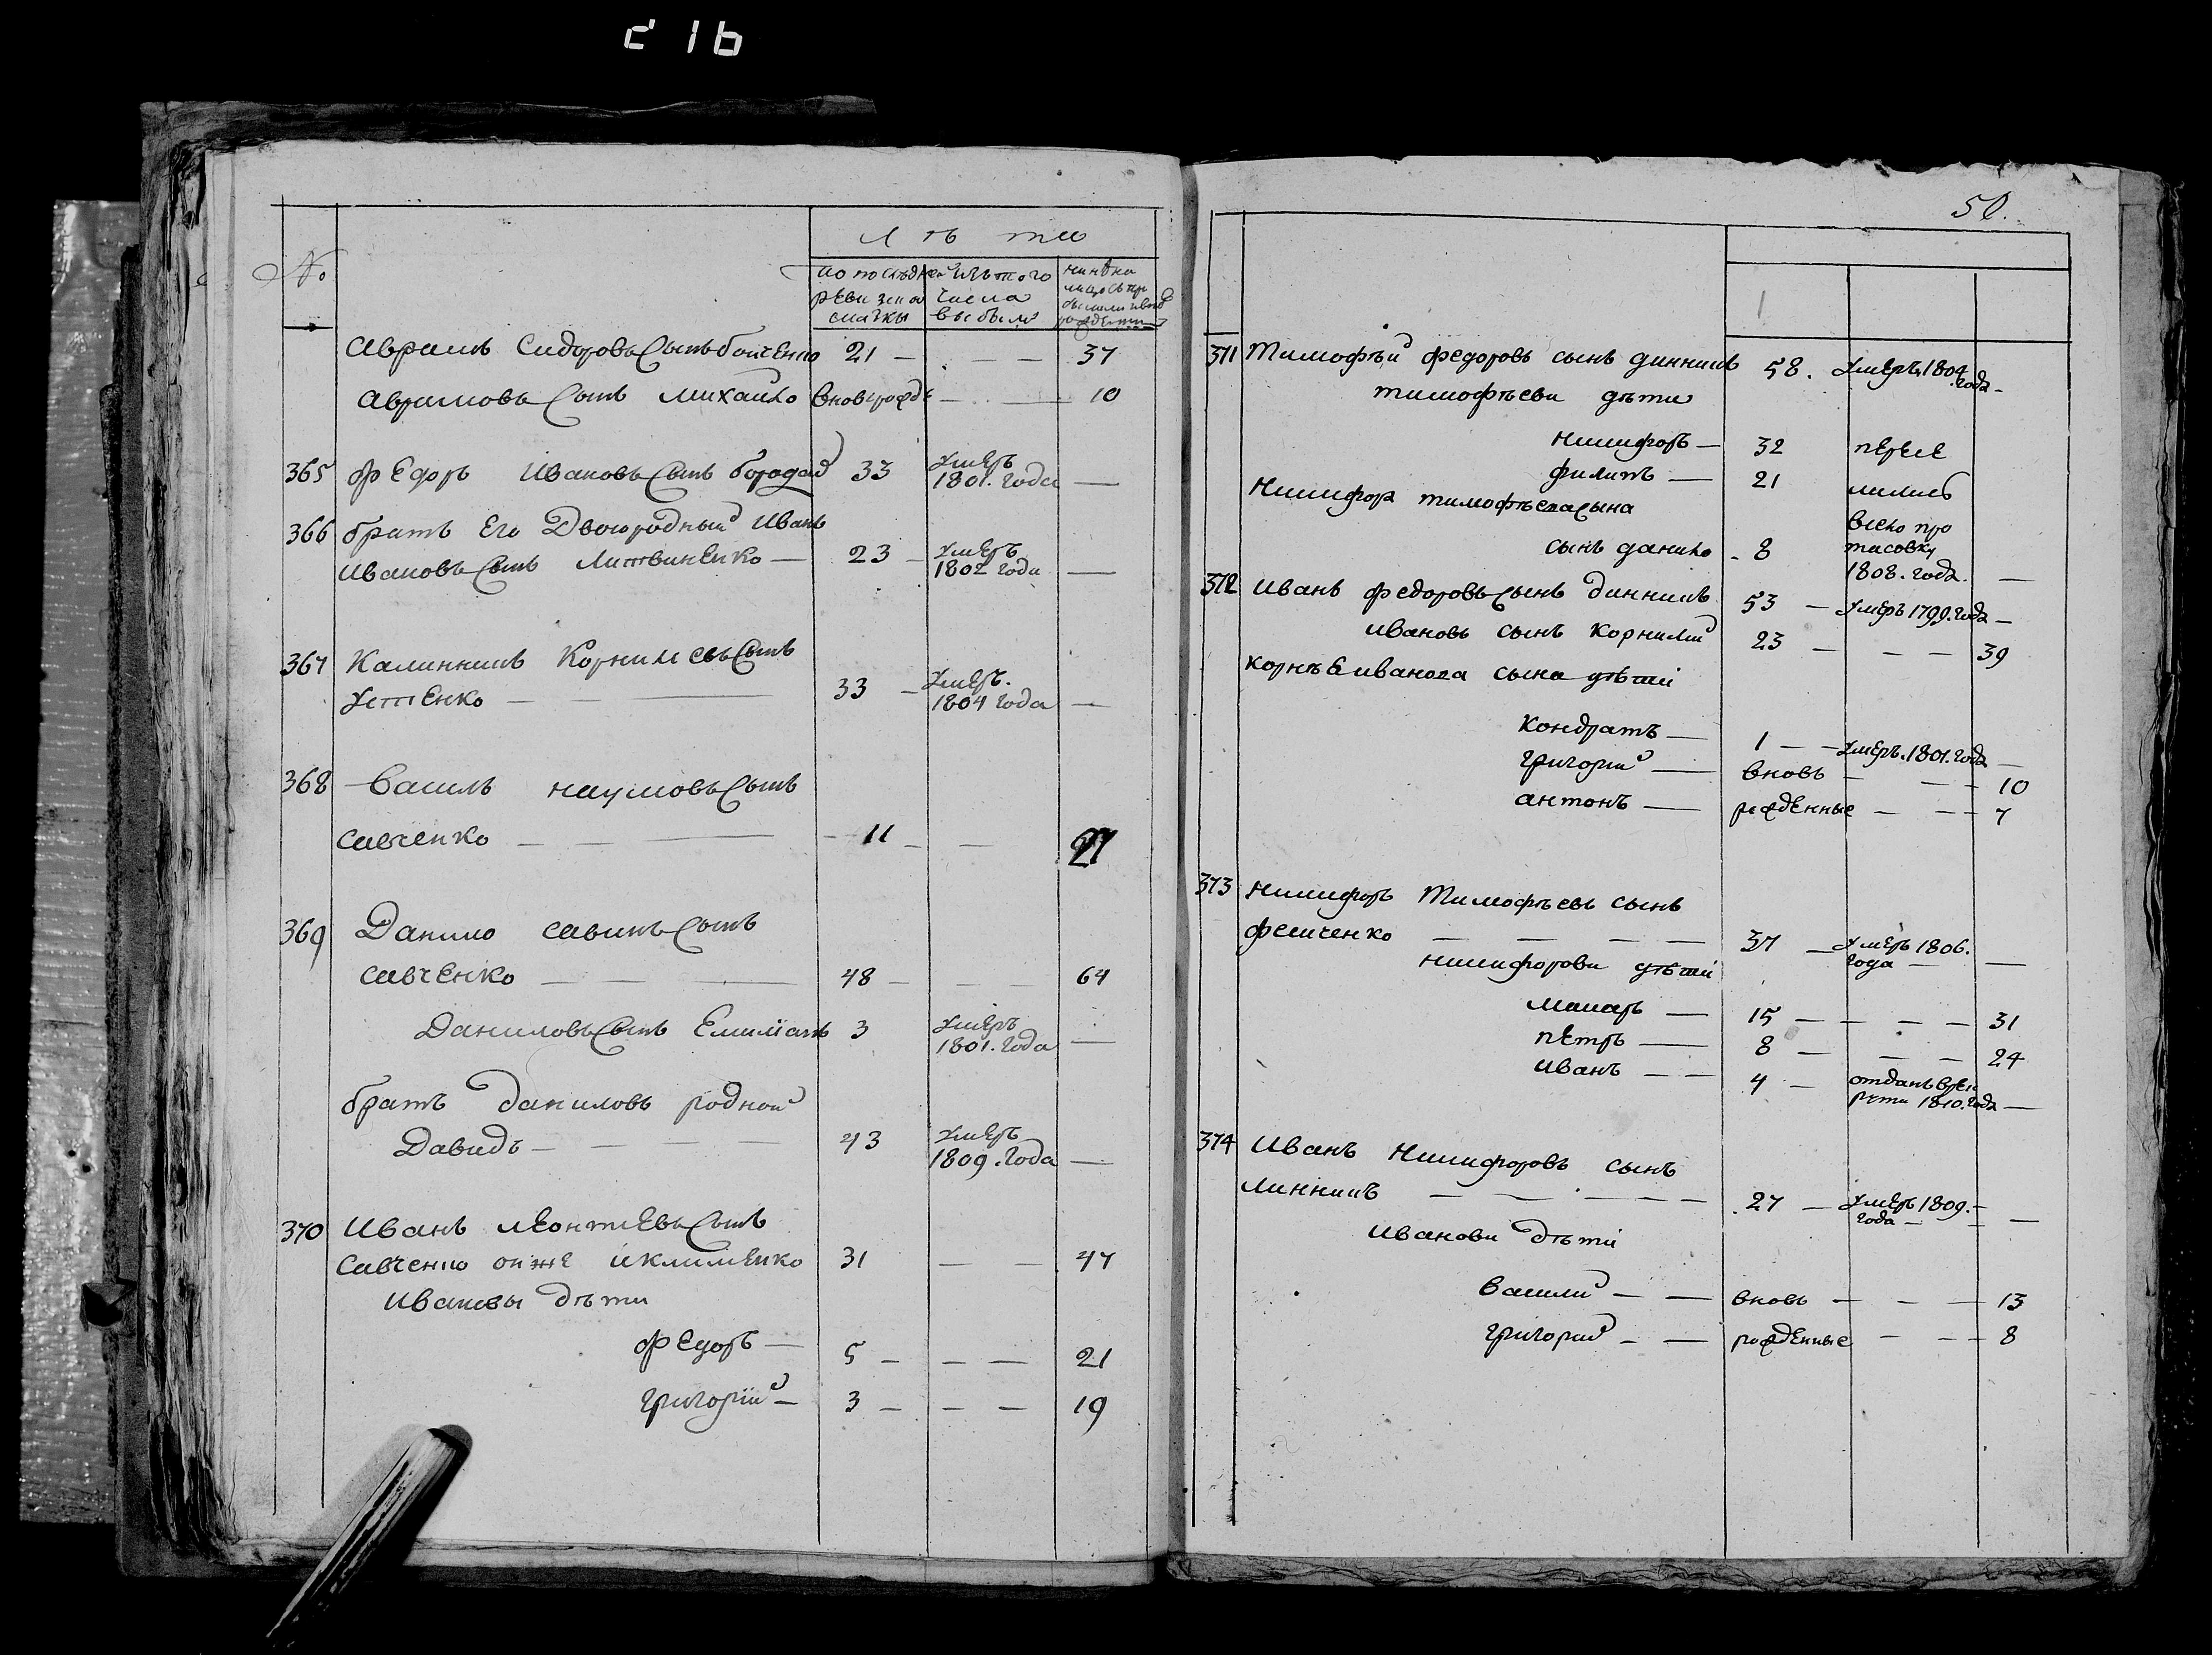 с 16
№
Лѣта
по последней ревизской скаски
изъ того числа выбыло
Аврамъ Сидоровъ сынъ бойченко 21 — — — 37
Аврамовъ сынъ михайло вновь рожде — — 10
365 Федоръ Ивановъ сынъ бородай 33 умеръ 1801. года —
366 братъ Его Двоюродный Иванъ
Ивановъ сынъ Литвиненко — 23 — умеръ 1802 года —
367 Калинникъ Корниевъ сынъ
Устенко — — — 33 — умеръ. 1804 года —
368 Василь наумовъ сынъ
савченко — — — 11 — — 27
369 Данило савинъ сынъ
савченко — — — 48 — — — 64
Даниловъ сынъ Емилианъ 3 умеръ 1801. года —
братъ Даниловъ родной
Давидъ — — — — 43 умеръ 1809. года —
370 Иванъ Леонтиевъ сынъ
Савченко онже и клименко 31 — — 47
Ивановы дѣти
Федоръ — 5 — — — 21
Григорій — 3 — — — 19
50.
371 Тимофѣй федоровъ сынъ динникъ 58. умеръ 1804 года —
тимофѣеви дѣти
никифоръ — 32 пересе
филипъ — 21 лились
Никифора тимофѣева сына
сынъ данило — 8 въсело протасовку 1808. года. —
372 Иванъ федоровъ сынъ динникъ 53 — умеръ 1799. года —
ивановъ сынъ корнилий 23 — — — 39
корнѣя иванова сына дѣти
кондратъ — 1 — — умеръ. 1801. года —
григорий — вновь — — — 10
антонъ — рожденные — — — 7
373 никифоръ Тимофѣевъ сынъ
фесиченко — — — — 37 — умеръ 1806. года — —
никифорови дѣти
макаръ — 15 — — — — 31
петръ — 8 — — — 24
иванъ — — 4 — отданъ врекруты 1810. года —
374 Иванъ Никифоровъ сынъ
линникъ — — — — — 27 — умеръ 1809. года — — —
Иванови дѣти
василий — — вновь — — — 13
григорий — — рожденные — — — 8